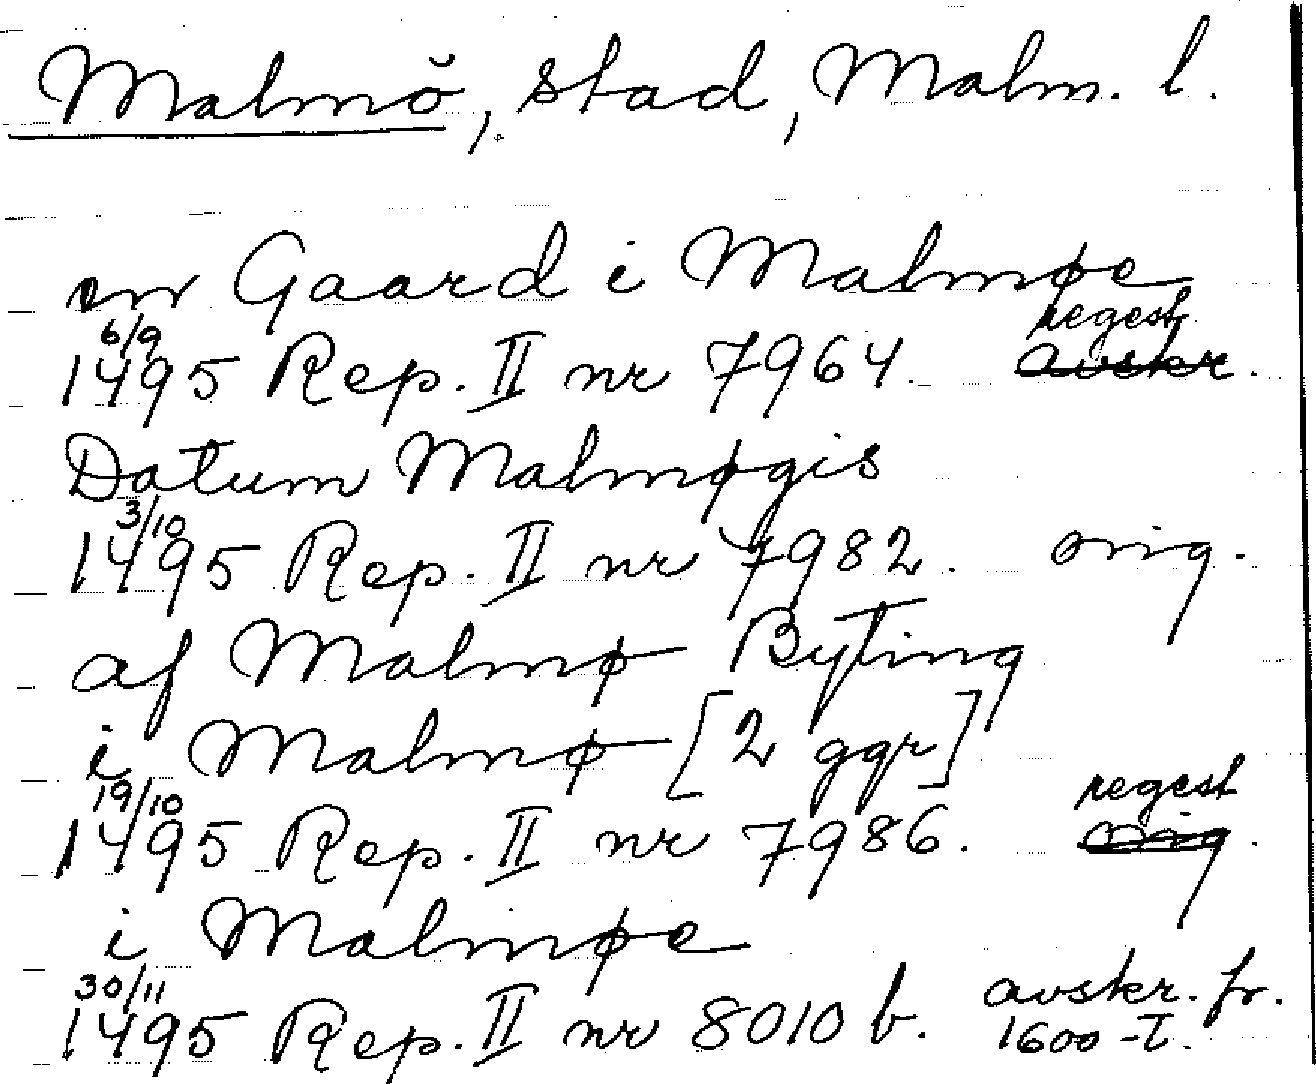 Malmö, stad, Malm. l.
en Gaard i Malmøe
6/9 regest
1495 Rep. II nr 7964. avskr.
Datum Malmøgis
3/10
1495 Rep. II nr 7982. orig.
af Malmø Byting
i Malmø [2 ggr]
19/10 regest
1495 Rep. II nr 7986. orig.
i Malmøe
30/11 avskr. fr.
1495 Rep. II nr 8010 b. 1600-t.